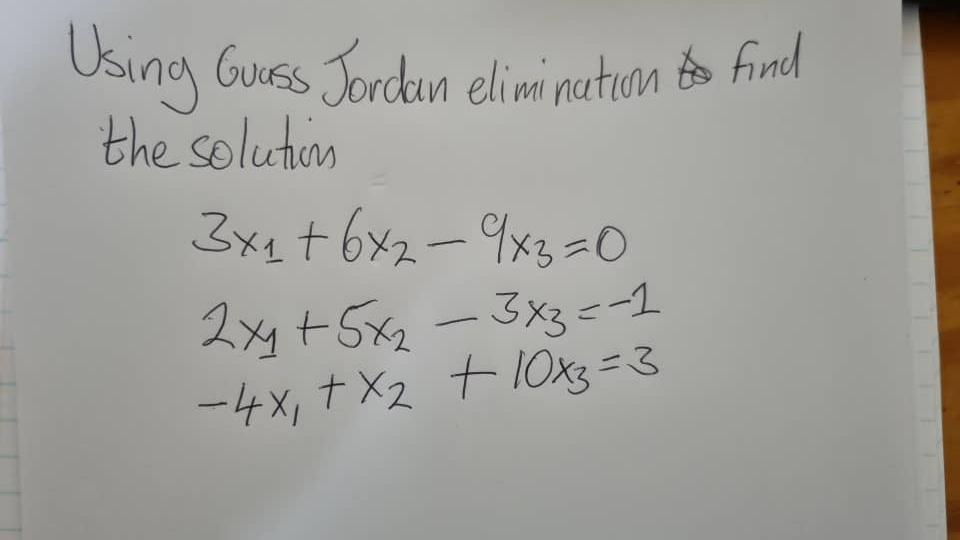 Using Guass Jordan elimination to find
the solution
3x1 + 6x2 - 9x3 = 0
2x1 + 5x2 - 3x3 = -1
-4x1 + x2 + 10x3 = 3